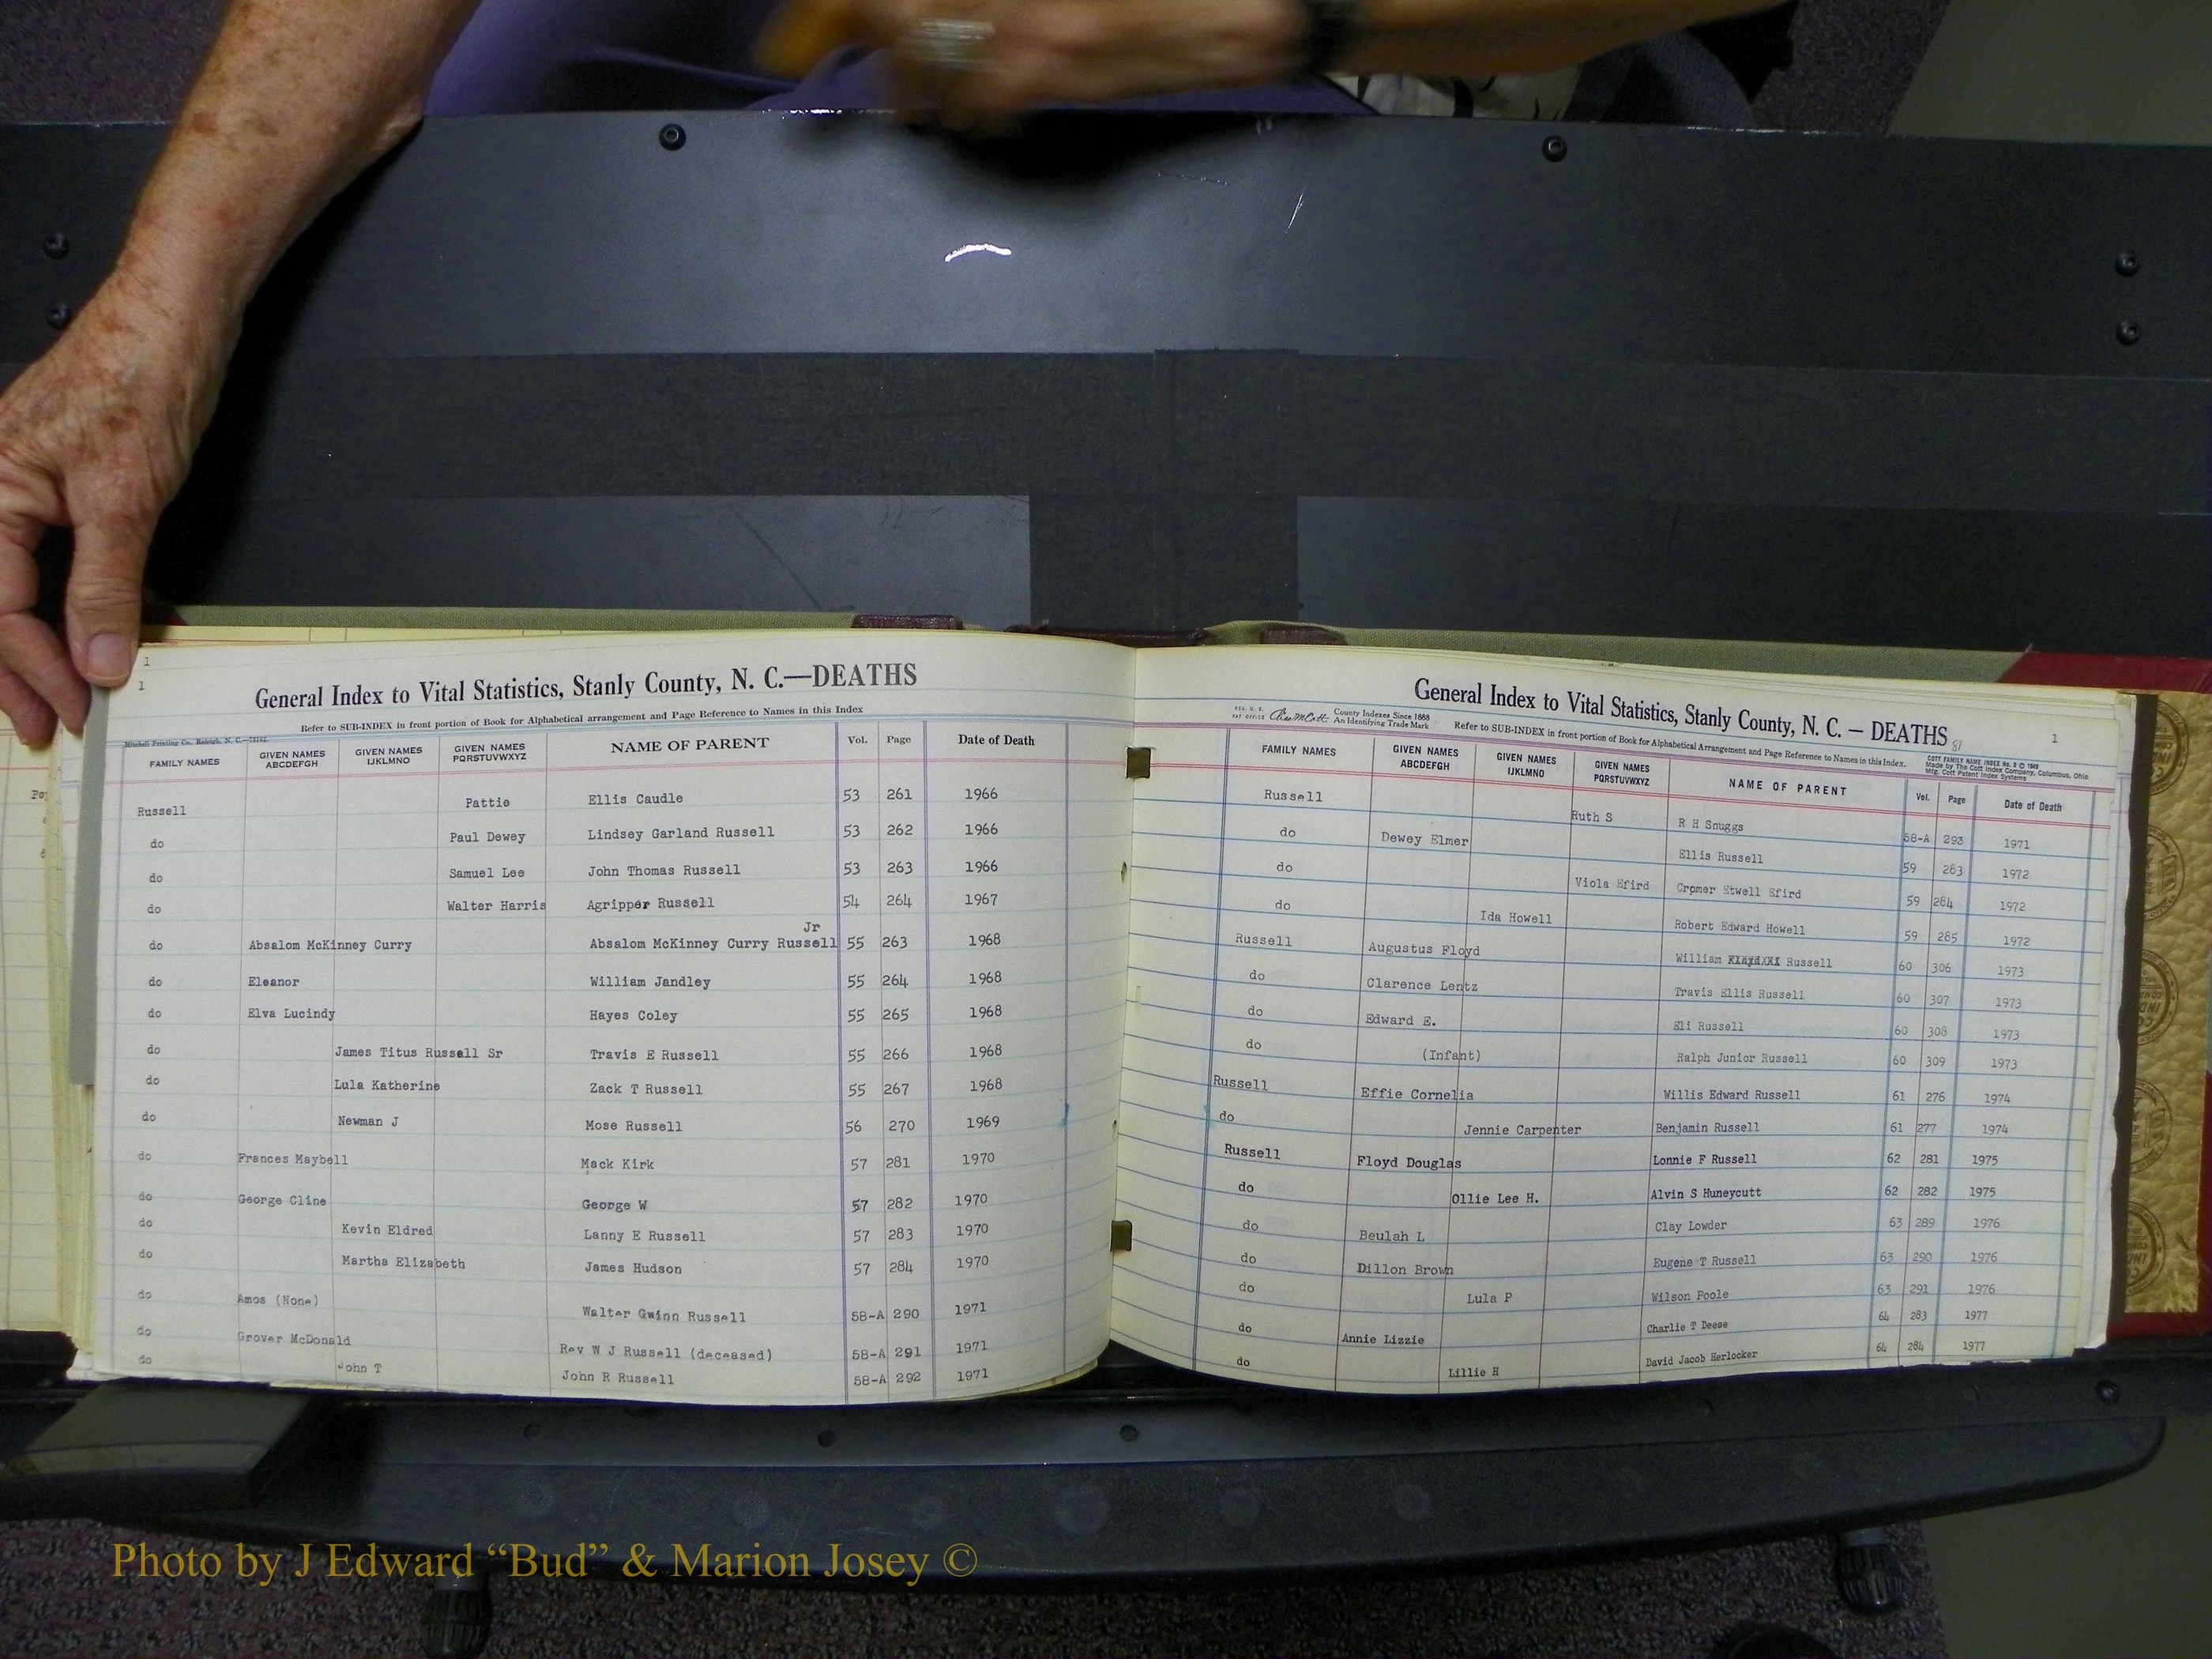 1
1
General Index to Vital Statistics, Stanly County, N. C.—DEATHS
Refer to SUB-INDEX in front portion of Book for Alphabetical arrangement and Page Reference to Names in this Index
Mitchell Printing Co. Raleigh, N. C.
FAMILY NAMES GIVEN NAMES ABCDEFGH GIVEN NAMES IJKLMNO GIVEN NAMES PQRSTUVWXYZ NAME OF PARENT Vol. Page Date of Death
Russell Pattie Ellis Caudle 53 261 1966
do Paul Dewey Lindsey Garland Russell 53 262 1966
do Samuel Lee John Thomas Russell 53 263 1966
do Walter Harris Agripper Russell 54 264 1967
Jr
do Absalom McKinney Curry Absalom McKinney Curry Russell 55 263 1968
do Eleanor William Jandley 55 264 1968
do Elva Lucindy Hayes Coley 55 265 1968
do James Titus Russell Sr Travis E Russell 55 266 1968
do Lula Katherine Zack T Russell 55 267 1968
do Newman J Mose Russell 56 270 1969
do Frances Maybell Mack Kirk 57 281 1970
do George Cline George W 57 282 1970
do Kevin Eldred Lanny E Russell 57 283 1970
do Martha Elizabeth James Hudson 57 284 1970
do Amos (None) Walter Gwinn Russell 58-A 290 1971
do Grover McDonald Rev W J Russell (deceased) 58-A 291 1971
do John T John R Russell 58-A 292 1971
General Index to Vital Statistics, Stanly County, N. C. — DEATHS 81
1
REG. U. S. PAT OFFICE County Indexes Since 1888 An Identifying Trade Mark
Refer to SUB-INDEX in front portion of Book for Alphabetical Arrangement and Page Reference to Names in this Index.
COTT FAMILY NAME INDEX No. 2 © 1949
Made by The Cott Index Company, Columbus, Ohio
Mfg. Cott Patent Index Systems
FAMILY NAMES GIVEN NAMES ABCDEFGH GIVEN NAMES IJKLMNO GIVEN NAMES PQRSTUVWXYZ NAME OF PARENT Vol. Page Date of Death
Russell Ruth S R H Snuggs 58-A 293 1971
do Dewey Elmer Ellis Russell 59 283 1972
do Viola Efird Cromer Etwell Efird 59 284 1972
do Ida Howell Robert Edward Howell 59 285 1972
Russell Augustus Floyd William Russell 60 306 1973
do Clarence Lentz Travis Ellis Russell 60 307 1973
do Edward E. Eli Russell 60 308 1973
do (Infant) Ralph Junior Russell 60 309 1973
Russell Effie Cornelia Willis Edward Russell 61 276 1974
do Jennie Carpenter Benjamin Russell 61 277 1974
Russell Floyd Douglas Lonnie F Russell 62 281 1975
do Ollie Lee H. Alvin S Huneycutt 62 282 1975
do Beulah L Clay Lowder 63 289 1976
do Dillon Brown Eugene T Russell 63 290 1976
do Lula P Wilson Poole 63 291 1976
do Annie Lizzie Charlie T Deese 64 283 1977
do Lillie H David Jacob Herlocker 64 284 1977
Photo by J Edward “Bud” & Marion Josey ©